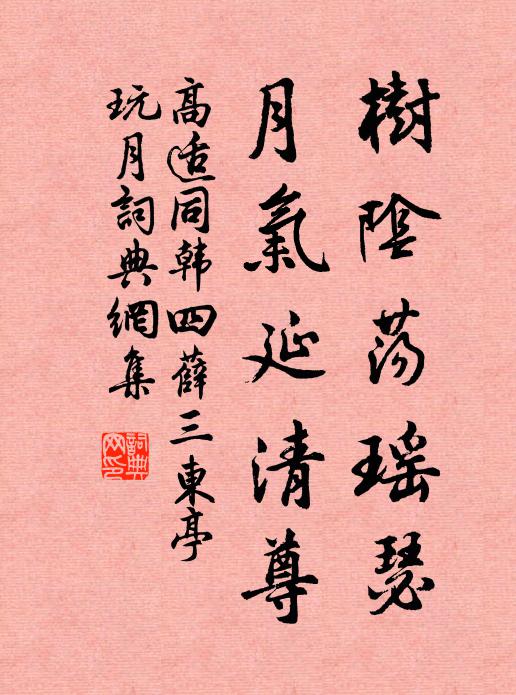 樹陰蕩瑶瑟
月氣延清尊
高适同韩四薛三東亭
玩月詞典網集
詞典网印